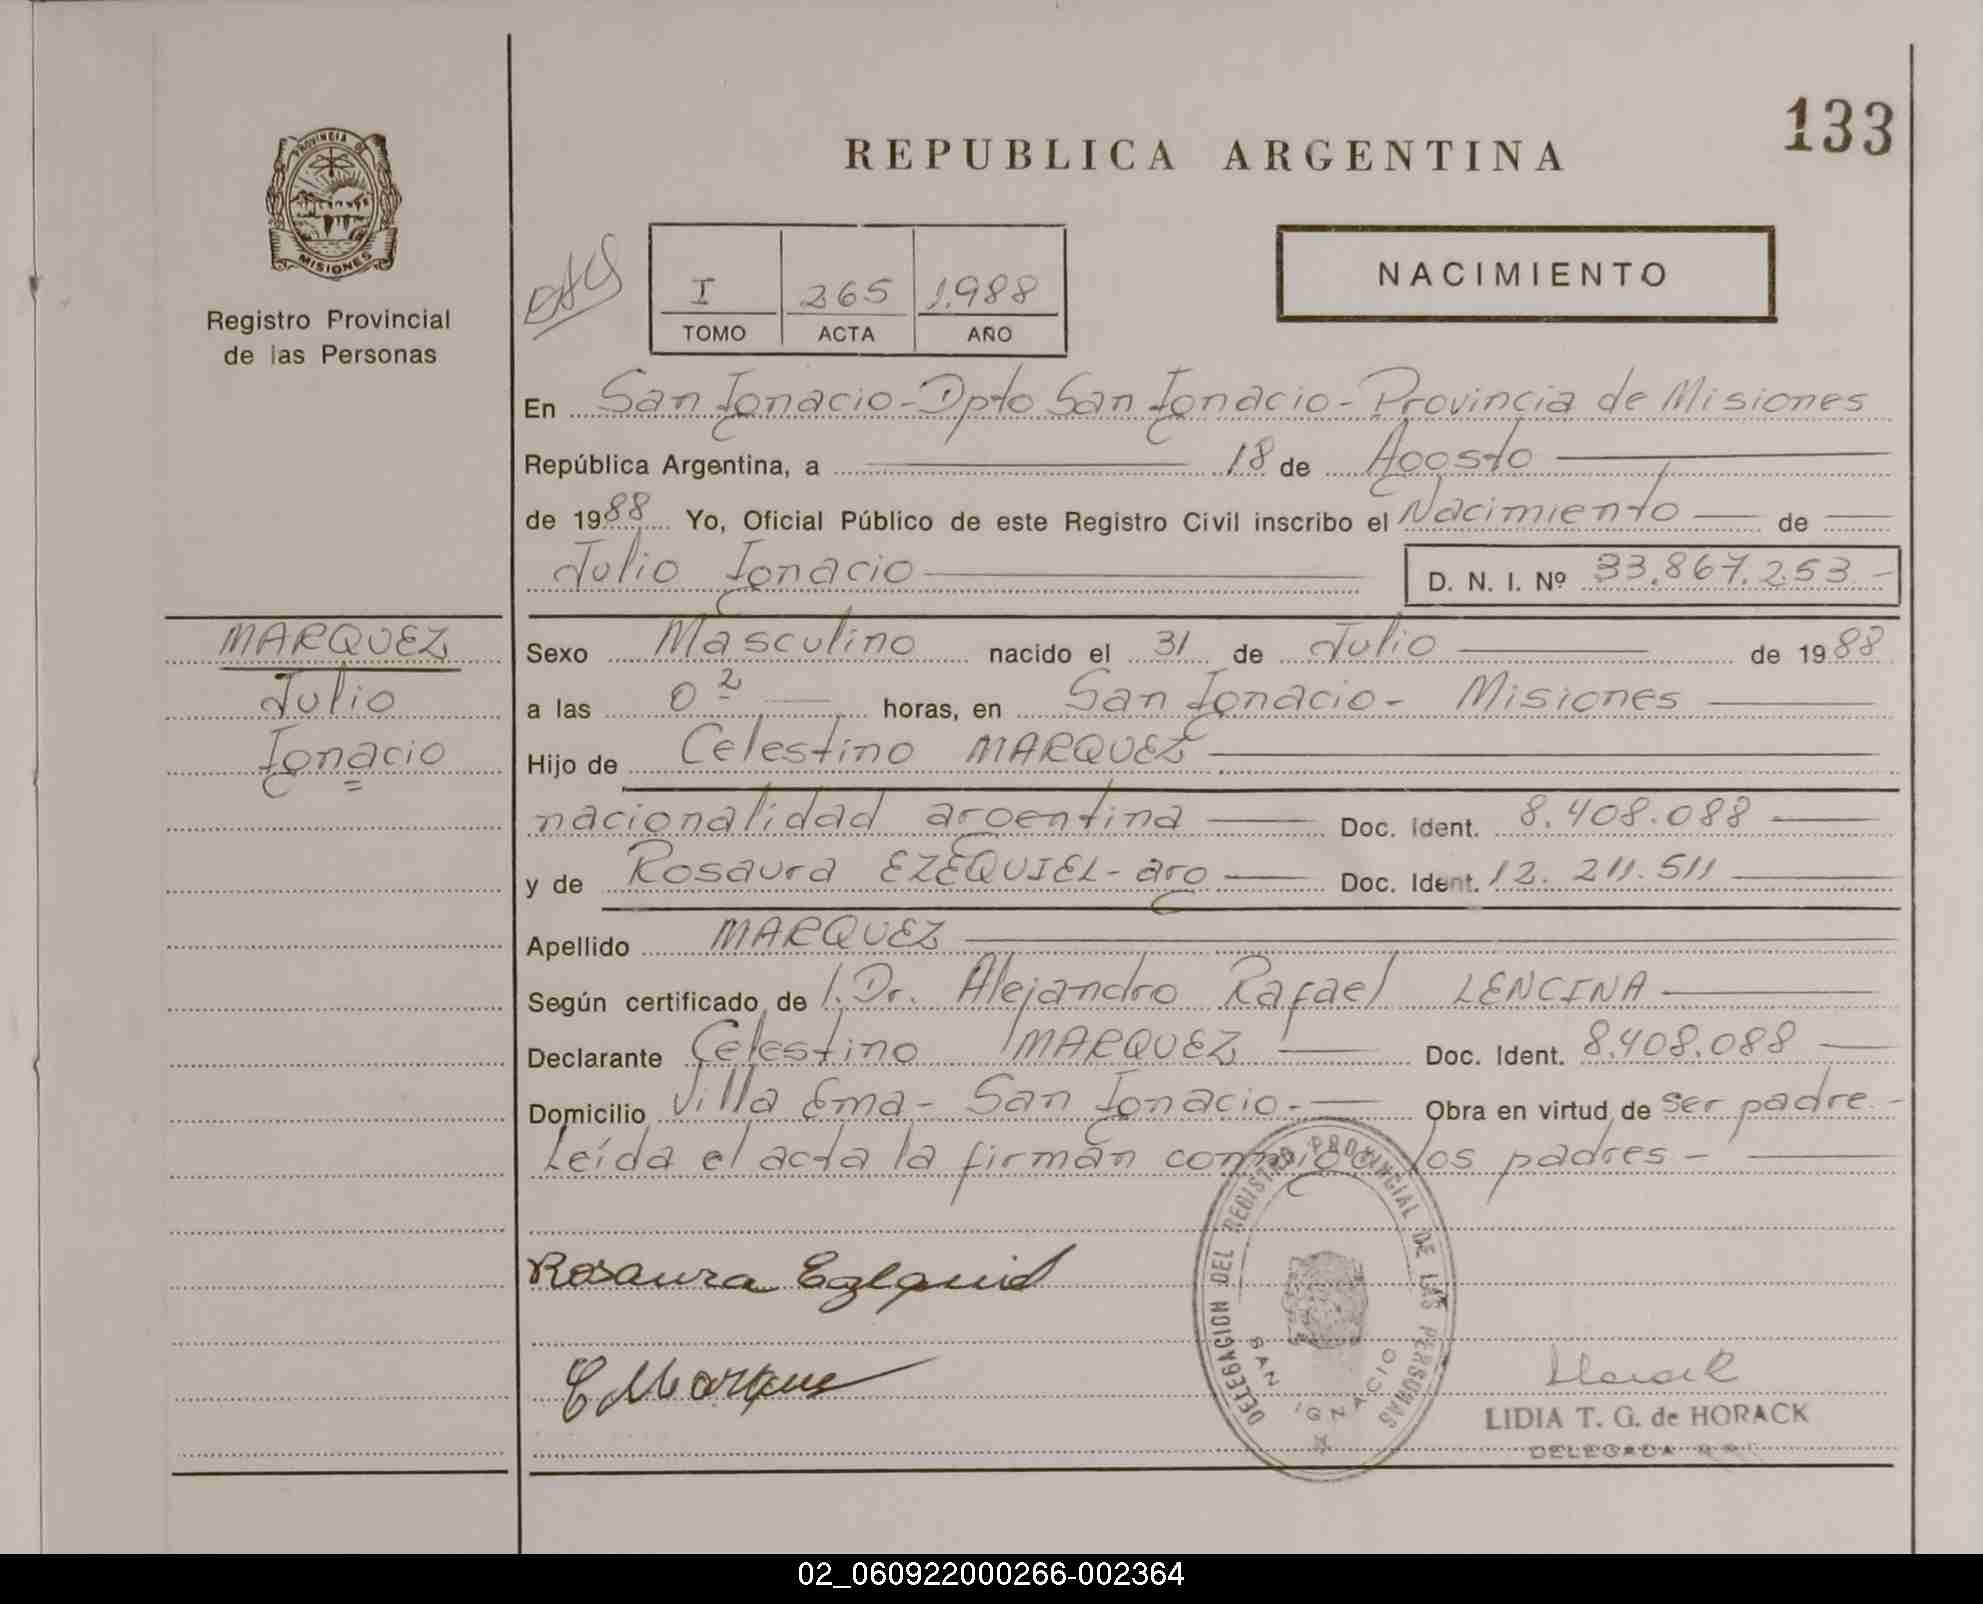 133
REPUBLICA ARGENTINA
PROVINCIA DE
MISIONES
Registro Provincial
de las Personas
I 265 1.988
TOMO ACTA AÑO
NACIMIENTO
En San Ignacio - Dpto San Ignacio - Provincia de Misiones
República Argentina, a 18 de Agosto
de 1988 Yo, Oficial Público de este Registro Civil inscribo el Nacimiento de
Julio Ignacio D. N. I. Nº 33.867.253.-
MARQUEZ
Julio
Ignacio
Sexo Masculino nacido el 31 de Julio de 1988
a las 02 horas, en San Ignacio - Misiones
Hijo de Celestino MARQUEZ
nacionalidad argentina Doc. Ident. 8.408.088
y de Rosaura EZEQUIEL - arg Doc. Ident. 12.211.511
Apellido MARQUEZ
Según certificado de l. Dr. Alejandro Rafael LENCINA
Declarante Celestino MARQUEZ Doc. Ident. 8.408.088
Domicilio Villa Ema - San Ignacio.- Obra en virtud de ser padre.-
Leída el acta la firman conmigo los padres -
Rosaura Ezequiel
C Marquez
DELEGACION DEL REGISTRO PROVINCIAL DE LAS PERSONAS
SAN IGNACIO
Horack
LIDIA T. G. de HORACK
DELEGADA
02_060922000266-002364